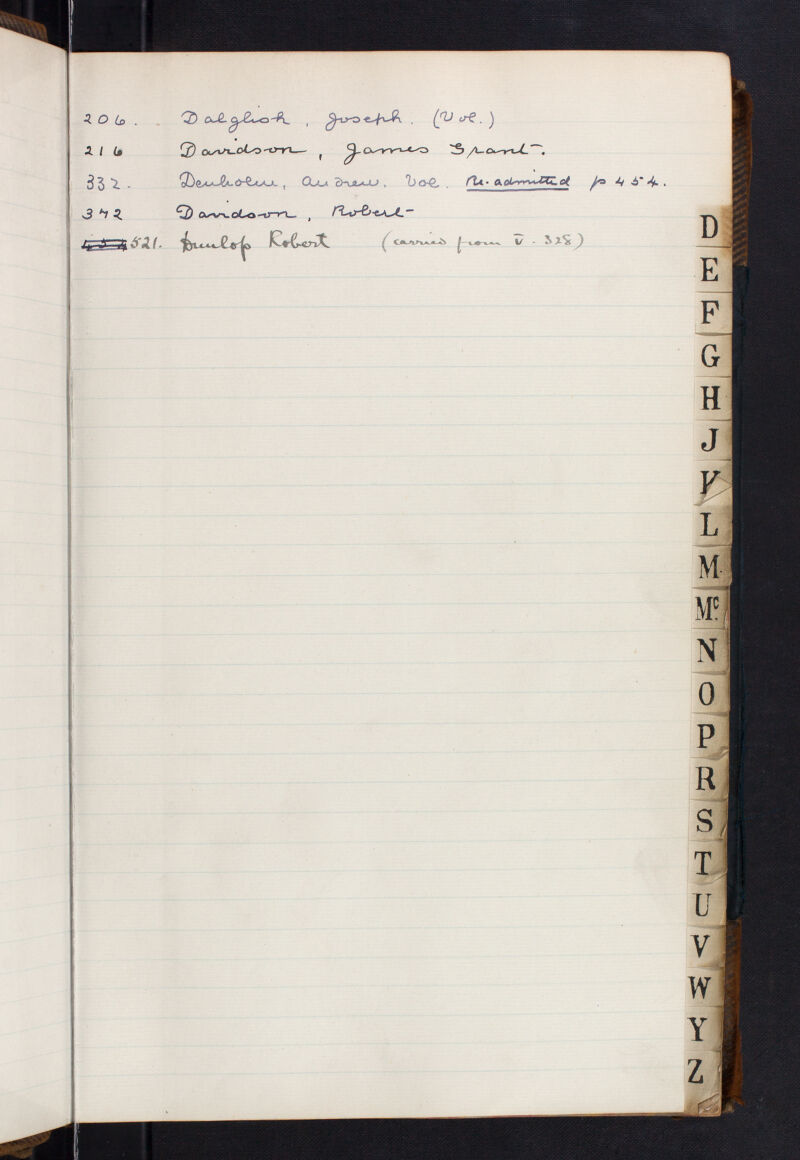 206. Dalglish, Joseph. (Vol.)
216 Davidson, James Grant.
332. Denholm, Andrew. Vol. Re-admitted p 454.
372 Davidson, Robert
521. Dunlop Robert (carried from V. 328)
D
E
F
G
H
J
K
L
M
Mc.
N
O
P
R
S
T
U
V
W
Y
Z